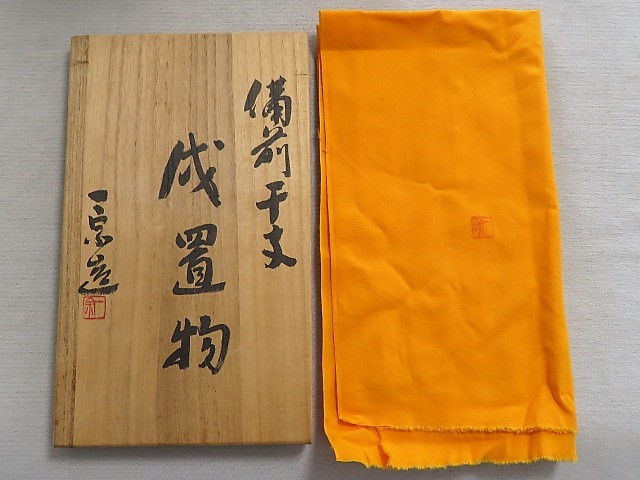 備前干支
戌置物
宗造